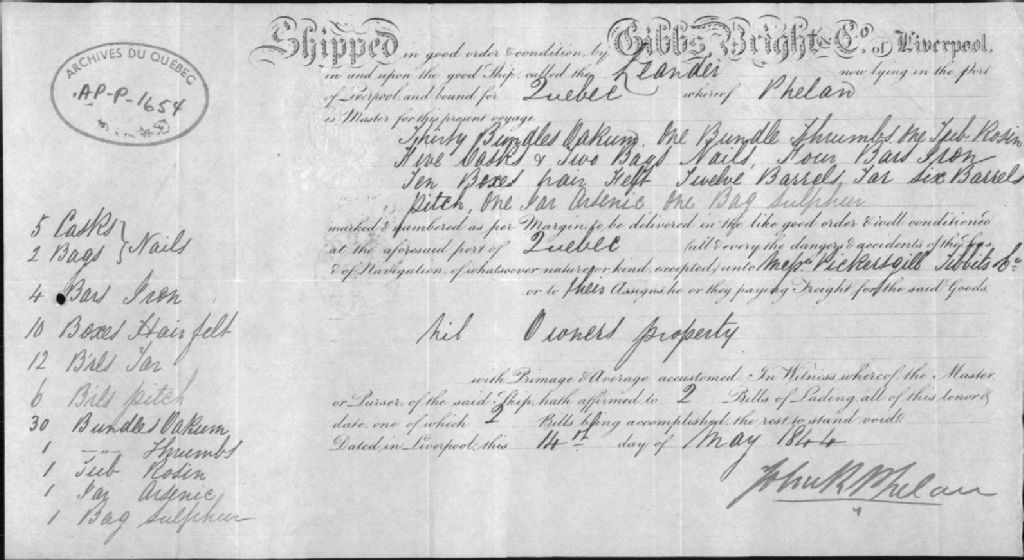 ARCHIVES DU QUÉBEC
AP-P-1654
Shipped in good order & condition, by Gibbs Bright & Co. of Liverpool,
in and upon the good Ship, called the Leander now lying in the Port
of Liverpool, and bound for Quebec whereof Phelan
is Master for this present voyage
Thirty Bundles Oakum, One Bundle Thrumbs, One Tub Rosin
Five Casks & Two Bags Nails, Four Bars Iron
Ten Boxes hair Felt Twelve Barrels Tar six Barrels
pitch, One Jar Arsenic One Bag sulphur
marked & numbered as per Margin, to be delivered in the like good order & well condition'd
at the aforesaid port of Quebec all & every the dangers & accidents of the Seas
& of Navigation, of whatsoever nature or kind, excepted, unto Messrs Pickersgill Tibbits & Co
or to their Assigns, he or they paying Freight for the said Goods,
nil Owners property
with Primage & Average accustomed. In Witness whereof, the Master,
or Purser, of the said Ship, hath affirmed to 2 Bills of Lading, all of this tenor &
date, one of which 2 Bills being accomplished, the rest to stand void.
Dated in Liverpool, this 14th day of May 1844
John R Phelan
5 Casks } Nails
2 Bags
4 Bars Iron
10 Boxes Hair felt
12 Brls Tar
6 Brls pitch
30 Bundles Oakum
1 " Thrumbs
1 Tub Rosin
1 Jar Arsenic
1 Bag Sulphur